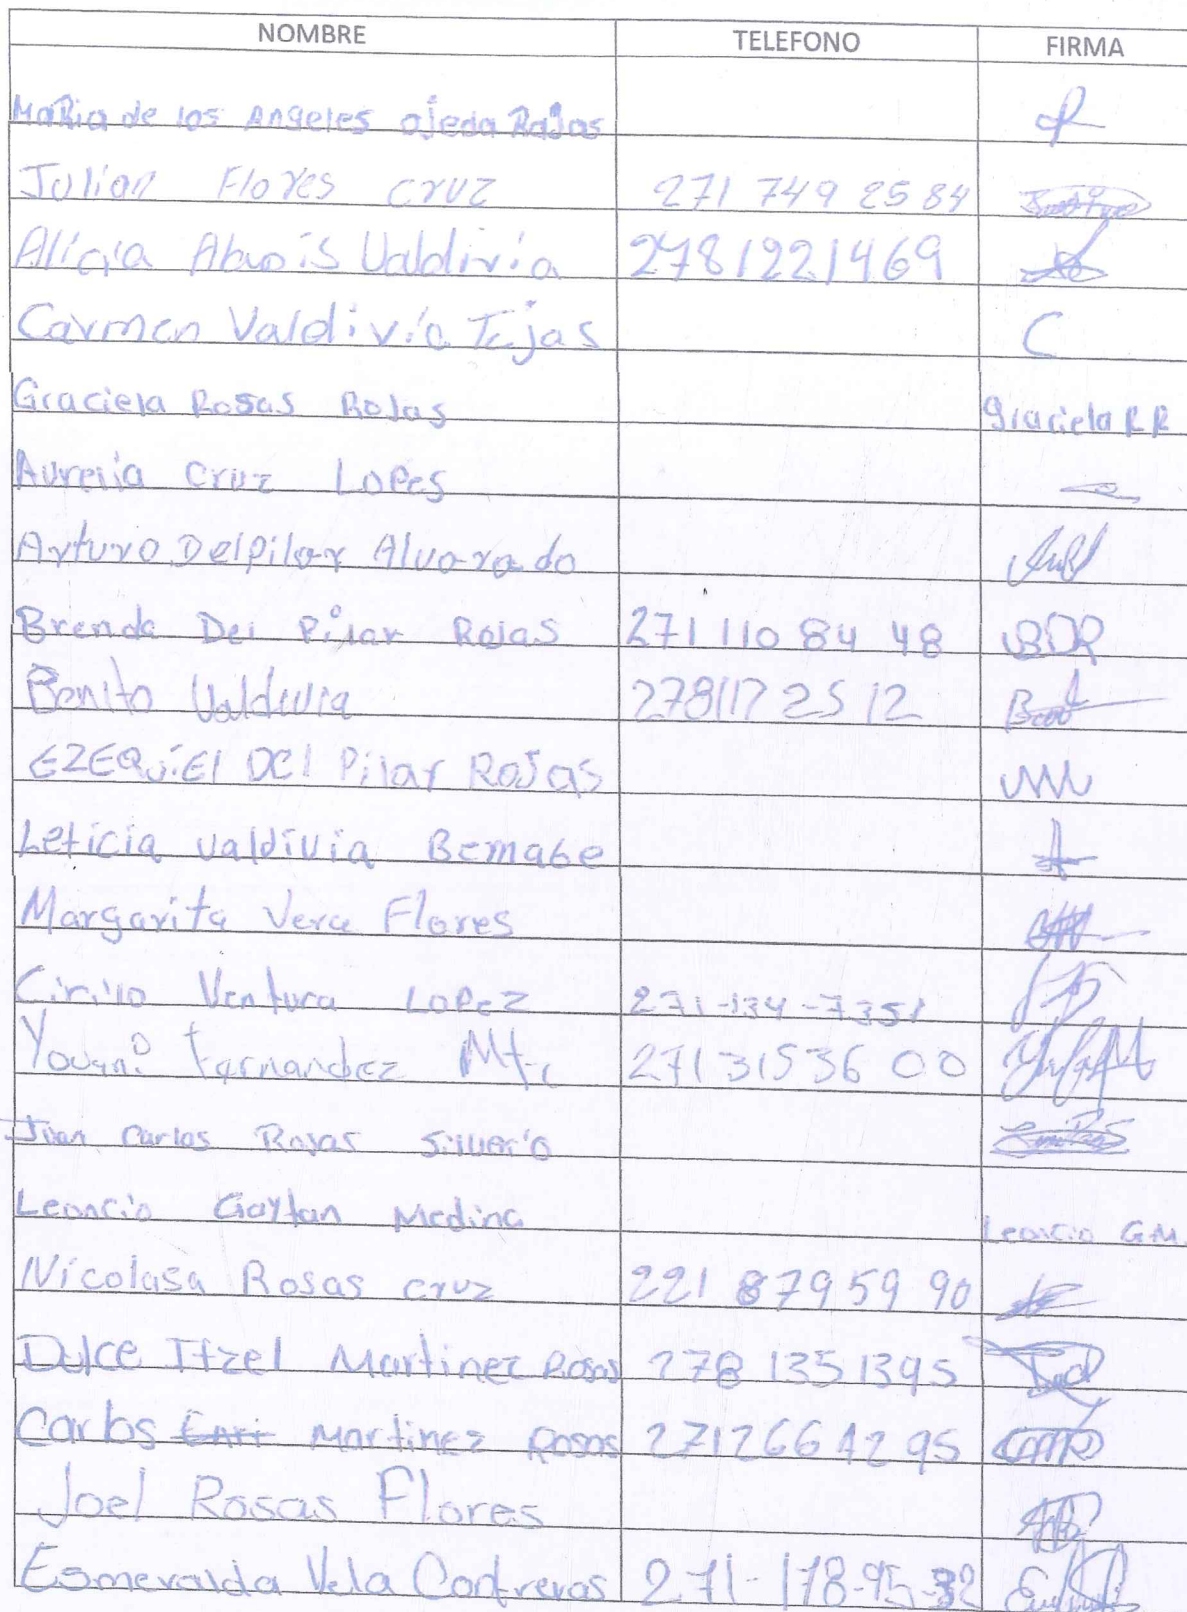 NOMBRE TELEFONO FIRMA
MaRia de los Angeles ojeda Rojas
Julian Flores cruz 271 749 25 84
Alicia Valdivia 2781221469
Carmen Valdivia Tejas C
Graciela Rosas Rojas Graciela R R
Aurelia Cruz Lopes
Arturo Delpilar Alvarado
Brenda Del Pilar Rojas 271 110 84 48 BDR
Benito Valdivia 278117 25 12
EZEQuiEl DEl Pilar Rojas
Leticia valdivia Bernabe
Margarita Vera Flores
Cirilo Ventura Lopez 271-134-7351
Yovani Fernandez 271 315 36 00
Juan Carlos Rojas Silverio
Leoncio Gaytan Medina Leoncio G.M.
Nicolasa Rosas cruz 221 879 59 90
Dulce Itzel Martinez Rosas 278 135 1395
Carlos Martinez Rosas 271266 42 95
Joel Rosas Flores
Esmeralda Vela Contreras 271-178-95-32